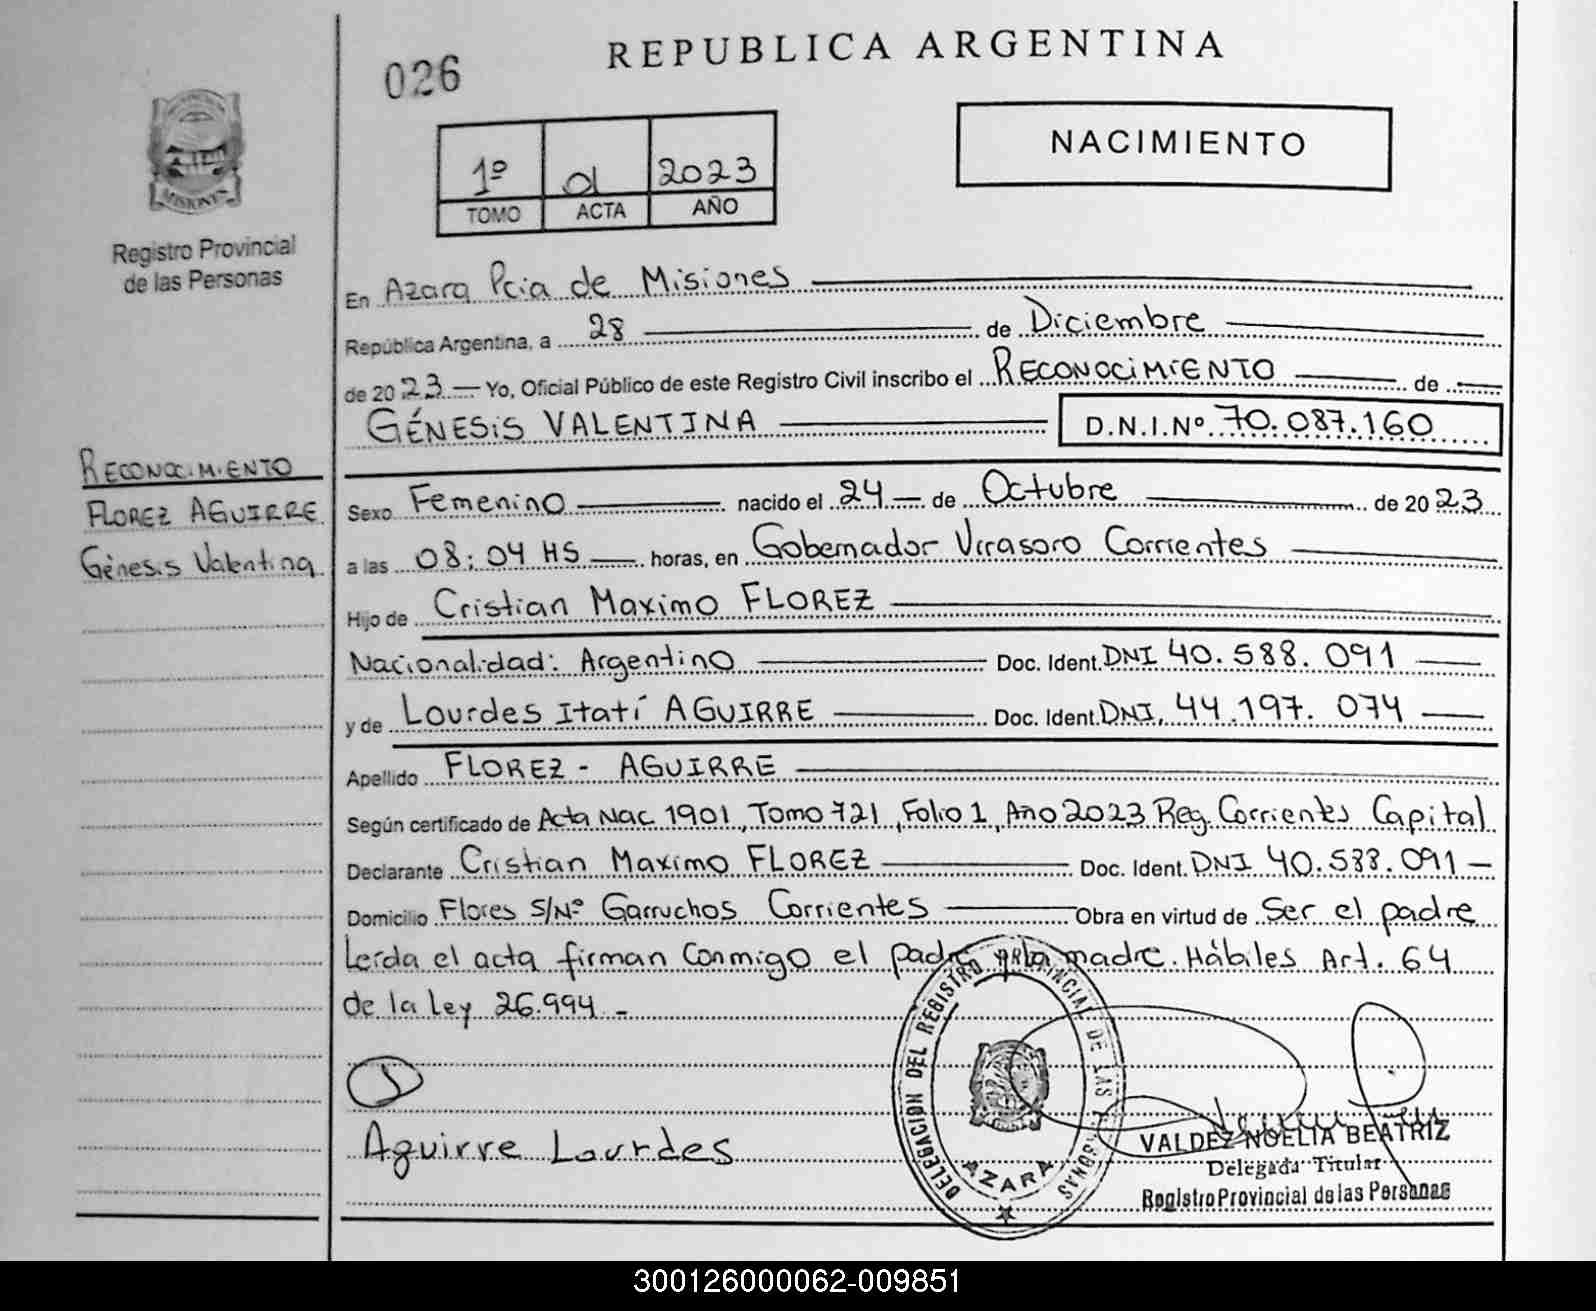 026
REPUBLICA ARGENTINA
NACIMIENTO
1º 01 2023
TOMO ACTA AÑO
MISIONES
Registro Provincial
de las Personas
En Azara Pcia de Misiones
República Argentina, a 28 de Diciembre
de 2023 Yo, Oficial Público de este Registro Civil inscribo el RECONOCIMIENTO de
GÉNESIS VALENTINA D.N.I.Nº 70.087.160
RECONOCIMIENTO
FLOREZ AGUIRRE
Génesis Valentina
Sexo Femenino nacido el 24 de Octubre de 2023
a las 08:04 HS horas, en Gobernador Virasoro Corrientes
Hijo de Cristian Maximo FLOREZ
Nacionalidad: Argentino Doc. Ident. DNI 40.588.091
y de Lourdes Itatí AGUIRRE Doc. Ident. DNI. 44.197.074
Apellido FLOREZ - AGUIRRE
Según certificado de Acta Nac 1901, Tomo 721, Folio 1, Año 2023 Reg. Corrientes Capital
Declarante Cristian Maximo FLOREZ Doc. Ident. DNI 40.588.091
Domicilio Flores S/Nº Garruchos Corrientes Obra en virtud de Ser el padre
Leída el acta firman Conmigo el padre y la madre. Hábiles Art. 64
de la ley 26.994 -
Aguirre Lourdes
DELEGACIÓN DEL REGISTRO PROVINCIAL DE LAS PERSONAS
AZARA
VALDEZ NOELIA BEATRIZ
Delegada Titular
Registro Provincial de las Personas
300126000062-009851